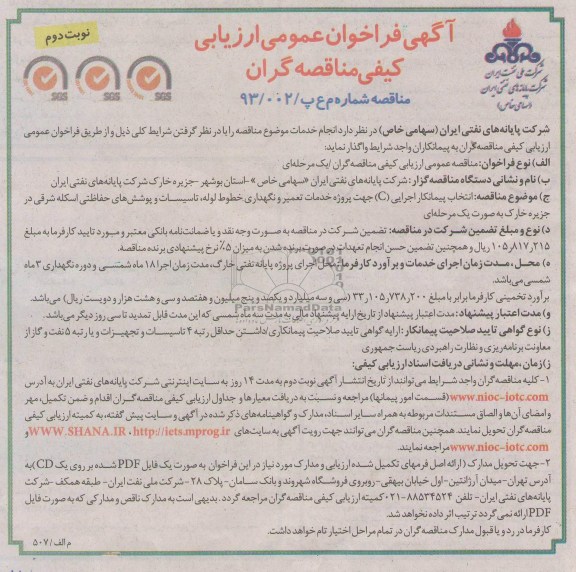 آگهی فراخوان عمومی ارزیابی
کیفی مناقصه گران
مناقصه شماره م ع پ/۹۳/۰۰۲
نوبت دوم
شرکت ملی نفت ایران
شرکت پایانه‌های نفتی ایران
(سهامی خاص)
SGS SGS SGS
شرکت پایانه‌های نفتی ایران (سهامی خاص) در نظر دارد انجام خدمات موضوع مناقصه را با در نظر گرفتن شرایط کلی ذیل و از طریق فراخوان عمومی
ارزیابی کیفی مناقصه‌گران به پیمانکاران واجد شرایط واگذار نماید:
الف) نوع فراخوان: مناقصه عمومی ارزیابی کیفی مناقصه گران /یک مرحله‌ای
ب) نام و نشانی دستگاه مناقصه گزار: شرکت پایانه‌های نفتی ایران «سهامی خاص» -استان بوشهر -جزیره خارک شرکت پایانه‌های نفتی ایران
ج) موضوع مناقصه: انتخاب پیمانکار اجرایی (C) جهت پروژه خدمات تعمیر و نگهداری خطوط لوله، تاسیسات و پوشش‌های حفاظتی اسکله شرقی در
جزیره خارک به صورت یک مرحله‌ای
د) نوع و مبلغ تضمین شرکت در مناقصه: تضمین شرکت در مناقصه به صورت وجه نقد و یا ضمانت‌نامه بانکی معتبر و مورد تایید کارفرما به مبلغ
۱٫۱۰۵٫۸۱۷٫۲۱۵ ریال و همچنین تضمین حسن انجام تعهدات در صورت برنده شدن به میزان ۵٪ نرخ پیشنهادی برنده مناقصه.
ه) محل، مدت زمان اجرای خدمات و برآورد کارفرما: محل اجرای پروژه پایانه نفتی خارگ، مدت زمان اجرا ۱۸ ماه شمسی و دوره نگهداری ۳ ماه
شمسی می‌باشد.
برآورد تخمینی کارفرما برابر با مبلغ ۳۳٫۱۰۵٫۷۳۸٫۲۰۰ (سی و سه میلیارد و یکصد و پنج میلیون و هفتصد و سی و هشت هزار و دویست ریال) می‌باشد.
و) مدت اعتبار پیشنهاد: مدت اعتبار پیشنهاد از تاریخ ارایه پیشنهاد مالی به مدت سه ماه شمسی که این مدت قابل تمدید تا سی روز دیگر می‌باشد.
ز) نوع گواهی تایید صلاحیت پیمانکار: ارایه گواهی تایید صلاحیت پیمانکاری/داشتن حداقل رتبه ۴ تاسیسات و تجهیزات و یا رتبه ۵ نفت و گاز از
معاونت برنامه‌ریزی و نظارت راهبردی ریاست جمهوری
ژ) زمان، مهلت و نشانی دریافت اسناد ارزیابی کیفی:
۱- کلیه مناقصه گران واجد شرایط می‌توانند از تاریخ انتشار آگهی نوبت دوم به مدت ۱۴ روز به سایت اینترنتی شرکت پایانه‌های نفتی ایران به آدرس
www.nioc-iotc.com (قسمت امور پیمانها) مراجعه و نسبت به دریافت معیارها و جداول ارزیابی کیفی مناقصه‌گران اقدام و ضمن تکمیل، مهر
و امضای آن‌ها و الصاق مستندات مربوطه به همراه سایر اسناد، مدارک و گواهینامه‌های ذکر شده در آگهی و سایت پیش گفته، به کمیته ارزیابی کیفی
مناقصه‌گران تحویل نمایند. همچنین مناقصه گران می‌توانند جهت رویت آگهی به سایت‌های http://iets.mprog.ir ، WWW.SHANA.IR و
www.nioc-iotc.com مراجعه نمایند.
۲- جهت تحویل مدارک (ارائه اصل فرمهای تکمیل شده ارزیابی و مدارک مورد نیاز در این فراخوان به صورت یک فایل PDF شده بر روی یک CD) به
آدرس تهران- میدان آرژانتین- اول خیابان بیهقی- روبروی فروشگاه شهروند و بانک سامان- پلاک ۲۸ - شرکت ملی نفت ایران- طبقه همکف -شرکت
پایانه‌های نفتی ایران- تلفن ۸۸۵۳۴۵۲۴-۰۲۱ کمیته ارزیابی کیفی مناقصه گران مراجعه گردد. بدیهی است به مدارک ناقص و مدارکی که به صورت فایل
PDF ارائه نمی گردد ترتیب اثر داده نخواهد شد.
کارفرما در رد و یا قبول مدارک مناقصه گران در تمام مراحل اختیار تام خواهد داشت.
م الف / ۵۰۷
ParsNamadData